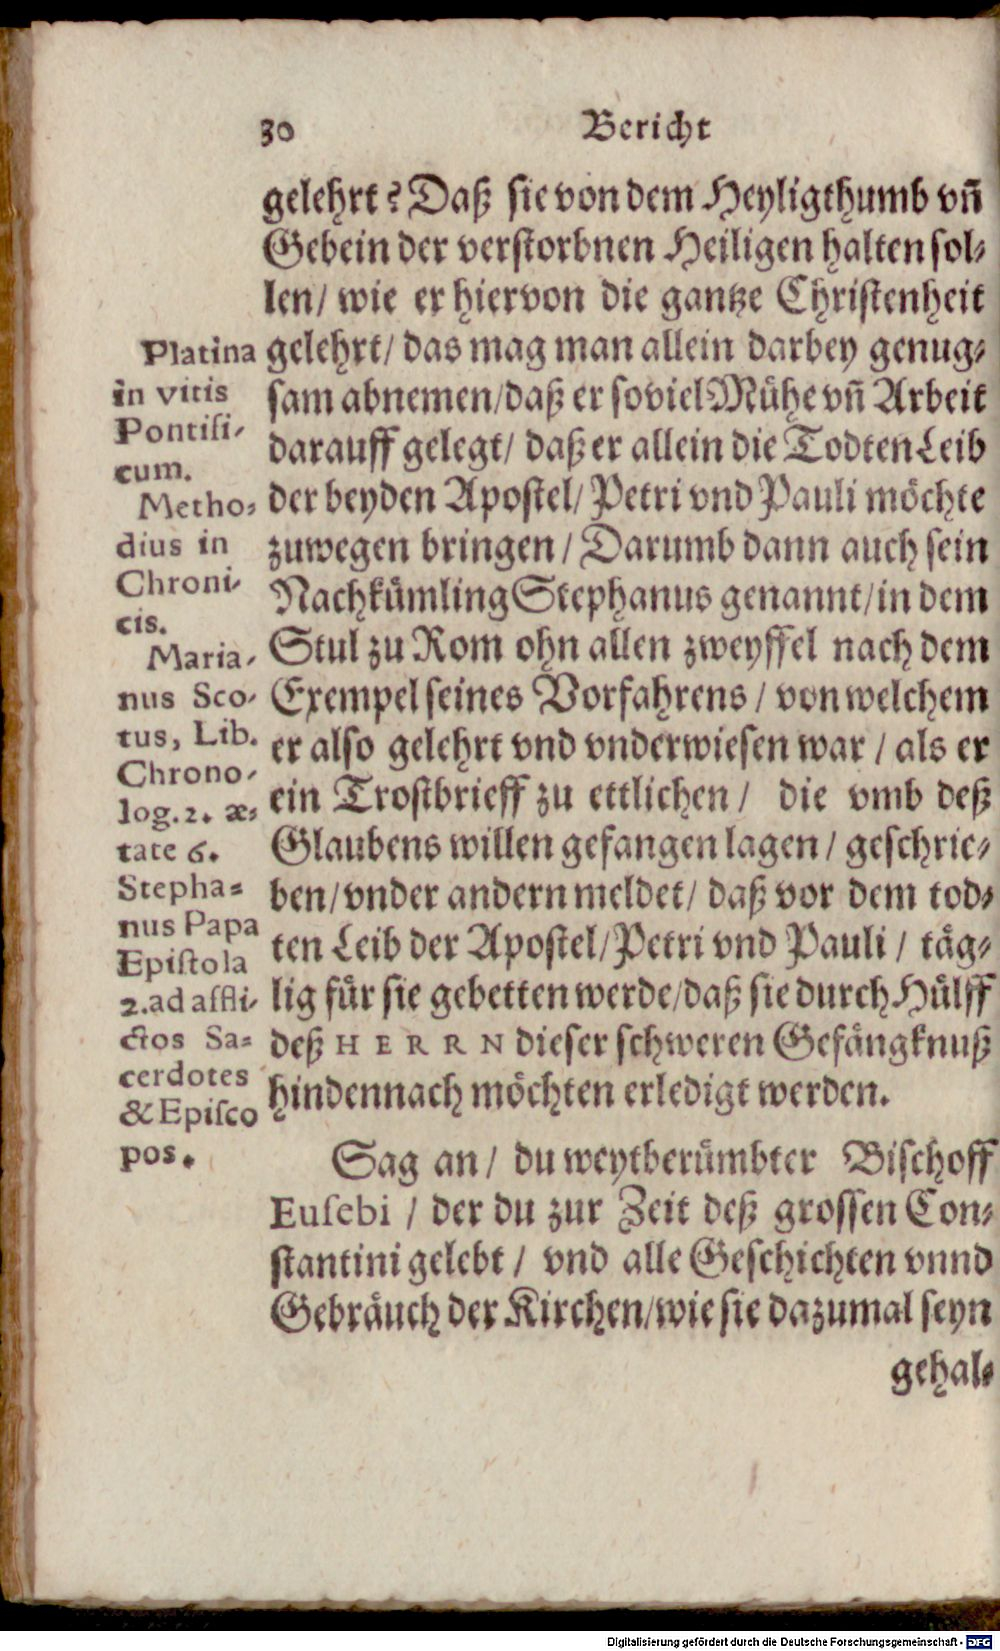 30 Bericht
gelehrt? Daß sie von dem Heyligthumb vn̄
Gebein der verstorbnen Heiligen halten sol-
len/ wie er hiervon die gantze Christenheit
gelehrt/ das mag man allein darbey genug-
sam abnemen/ daß er soviel Mühe vn̄ Arbeit
darauff gelegt/ daß er allein die Todten Leib
der beyden Apostel/ Petri vnd Pauli möchte
zuwegen bringen / Darumb dann auch sein
Nachkümling Stephanus genannt/ in dem
Stul zu Rom ohn allen zweyffel nach dem
Exempel seines Vorfahrens / von welchem
er also gelehrt vnd vnderwiesen war / als er
ein Trostbrieff zu ettlichen / die vmb deß
Glaubens willen gefangen lagen / geschrie-
ben/ vnder andern meldet/ daß vor dem tod-
ten Leib der Apostel/ Petri vnd Pauli / täg-
lig für sie gebetten werde/ daß sie durch Hülff
deß HERRN dieser schweren Gefängknuß
hindennach möchten erledigt werden.
Sag an/ du weytberümbter Bischoff
Eusebi / der du zur Zeit deß grossen Con-
stantini gelebt / vnd alle Geschichten vnnd
Gebräuch der Kirchen/ wie sie dazumal seyn
gehal-
Platina
in vitis
Pontifi-
cum.
Metho-
dius in
Chroni-
cis.
Maria-
nus Sco-
tus, Lib.
Chrono-
log. 2. æ-
tate 6.
Stepha-
nus Papa
Epistola
2. ad affli-
ctos Sa-
cerdotes
& Episco
pos.
Digitalisierung gefördert durch die Deutsche Forschungsgemeinschaft - DFG